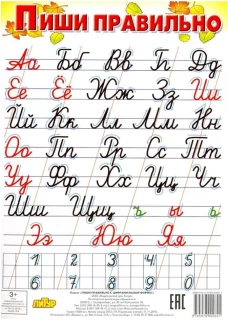 Пиши правильно
Аа Бб Вв Гг Дд
Ее Ёё Жж Зз Ии
Йй Кк Лл Мм Нн
Оо Пп Рр Сс Тт
Уу Фф Хх Чч Цц
Шш Щщ ъ ы ь
Ээ Юю Яя
1 2 3 4 5
6 7 8 9 0
3+
ЛИТУР
ЕАС